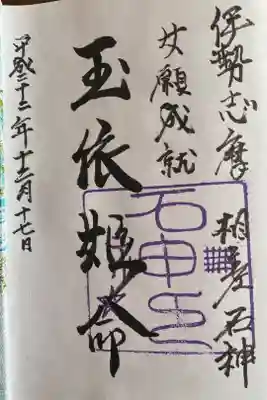 伊勢志摩 相差 石神
女願成就
玉依姫命
平成二十二年十二月十七日
石神